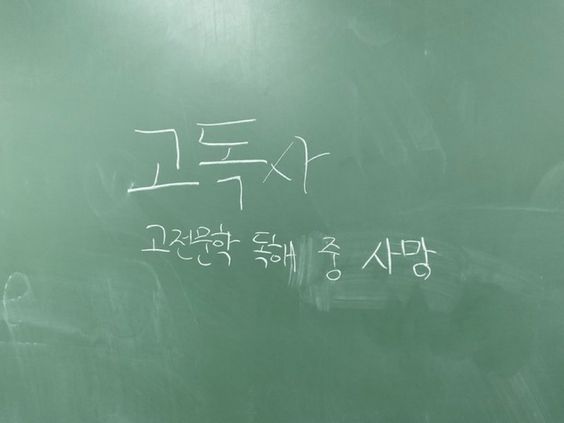 고독사
고전문학 독해 중 사망